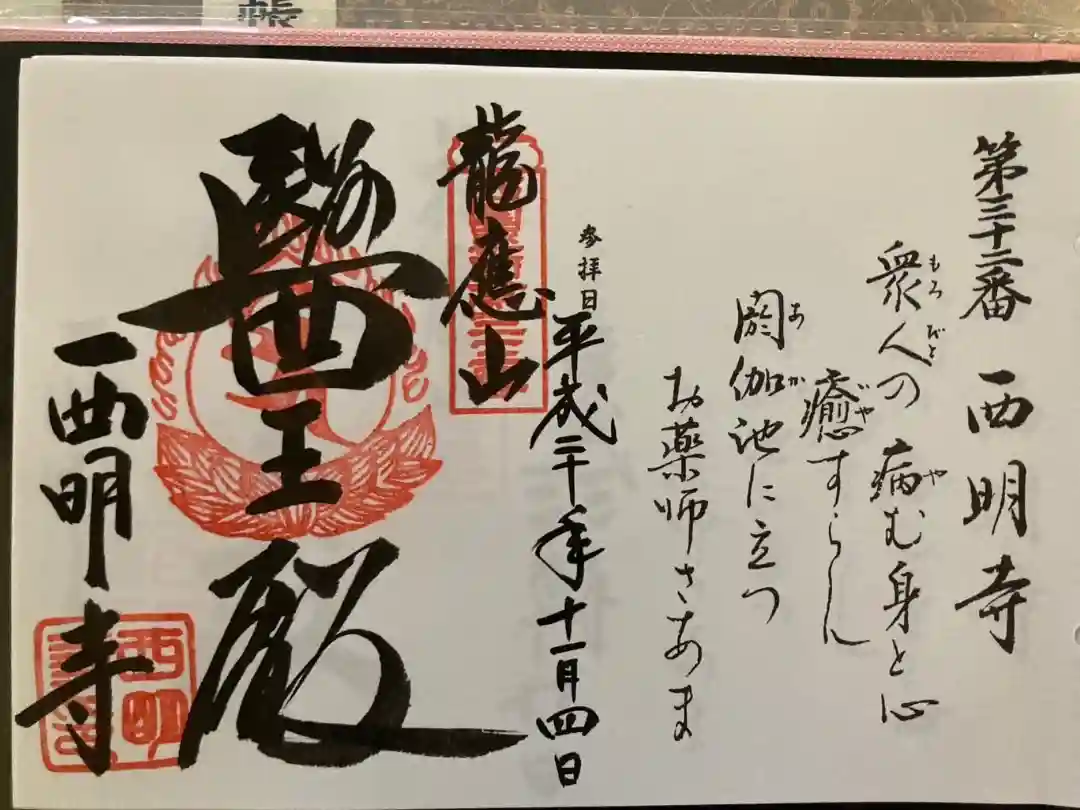 帳
第三十二番 西明寺
衆人の病む身と心
もろびと や
癒すらん
や
閼伽池に立つ
あか
お薬師さあま
参拝日
平成二十年十一月四日
龍應山
醫王殿
西明寺
西明